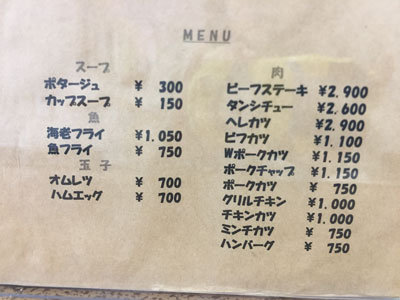 MENU
スープ
ポタージュ ¥ 300
カップスープ ¥ 150
魚
海老フライ ¥1.050
魚フライ ¥ 750
玉子
オムレツ ¥ 700
ハムエッグ ¥ 700
肉
ビーフステーキ ¥2.900
タンシチュー ¥2.600
ヘレカツ ¥2.900
ビフカツ ¥1.100
Wポークカツ ¥1.150
ポークチャップ ¥1.150
ポークカツ ¥ 750
グリルチキン ¥1.000
チキンカツ ¥1.000
ミンチカツ ¥ 750
ハンバーグ ¥ 750